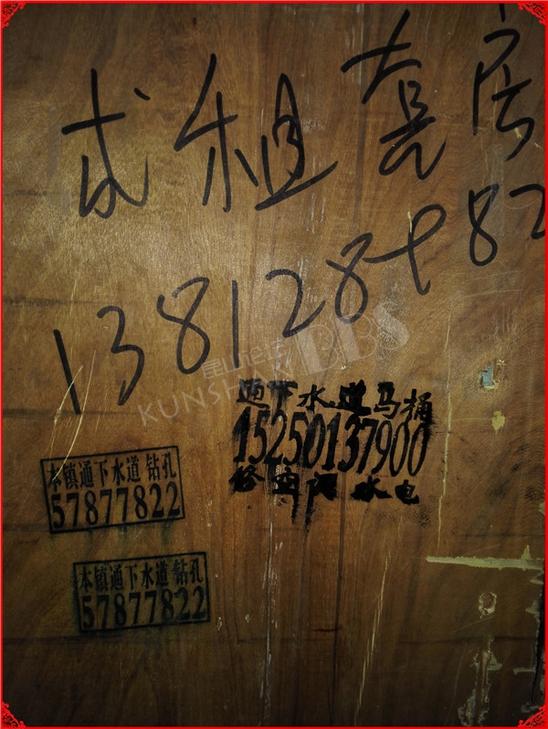 求租套房
138128
昆山论坛BBS
KUNSHAN
通下水道马桶
15250137900
修空调水电
本镇通下水道 钻孔
57877822
本镇通下水道 钻孔
57877822